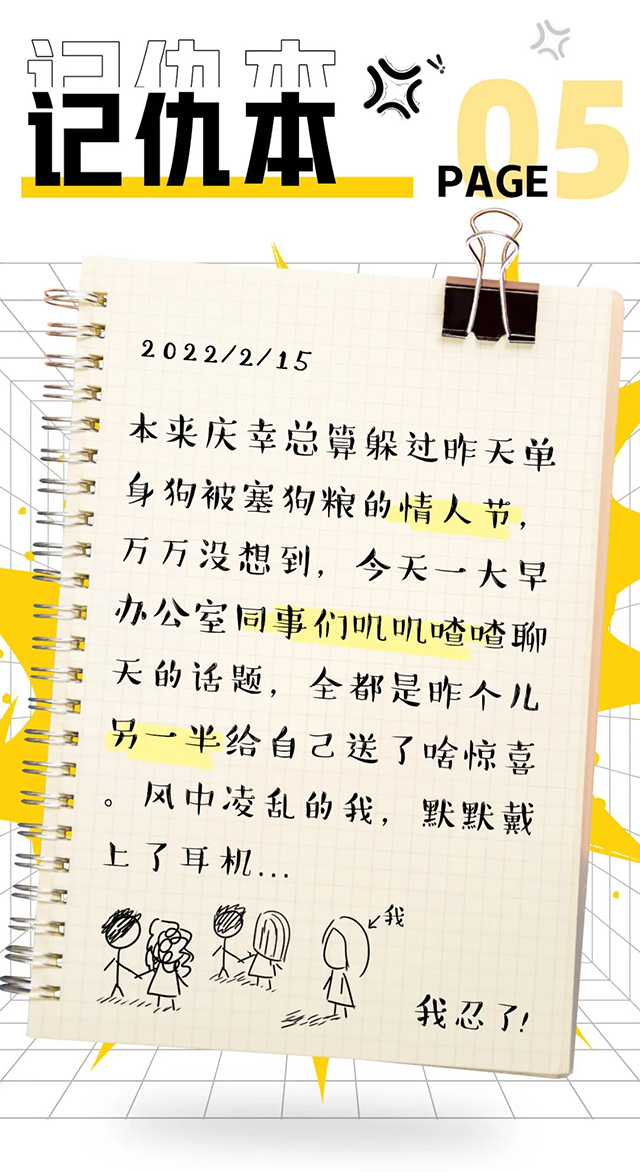 记仇本
记仇本
PAGE
05
2022/2/15
本来庆幸总算躲过昨天单
身狗被塞狗粮的情人节，
万万没想到，今天一大早
办公室同事们叽叽喳喳聊
天的话题，全都是昨个儿
另一半给自己送了啥惊喜
。风中凌乱的我，默默戴
上了耳机...
我
我忍了!